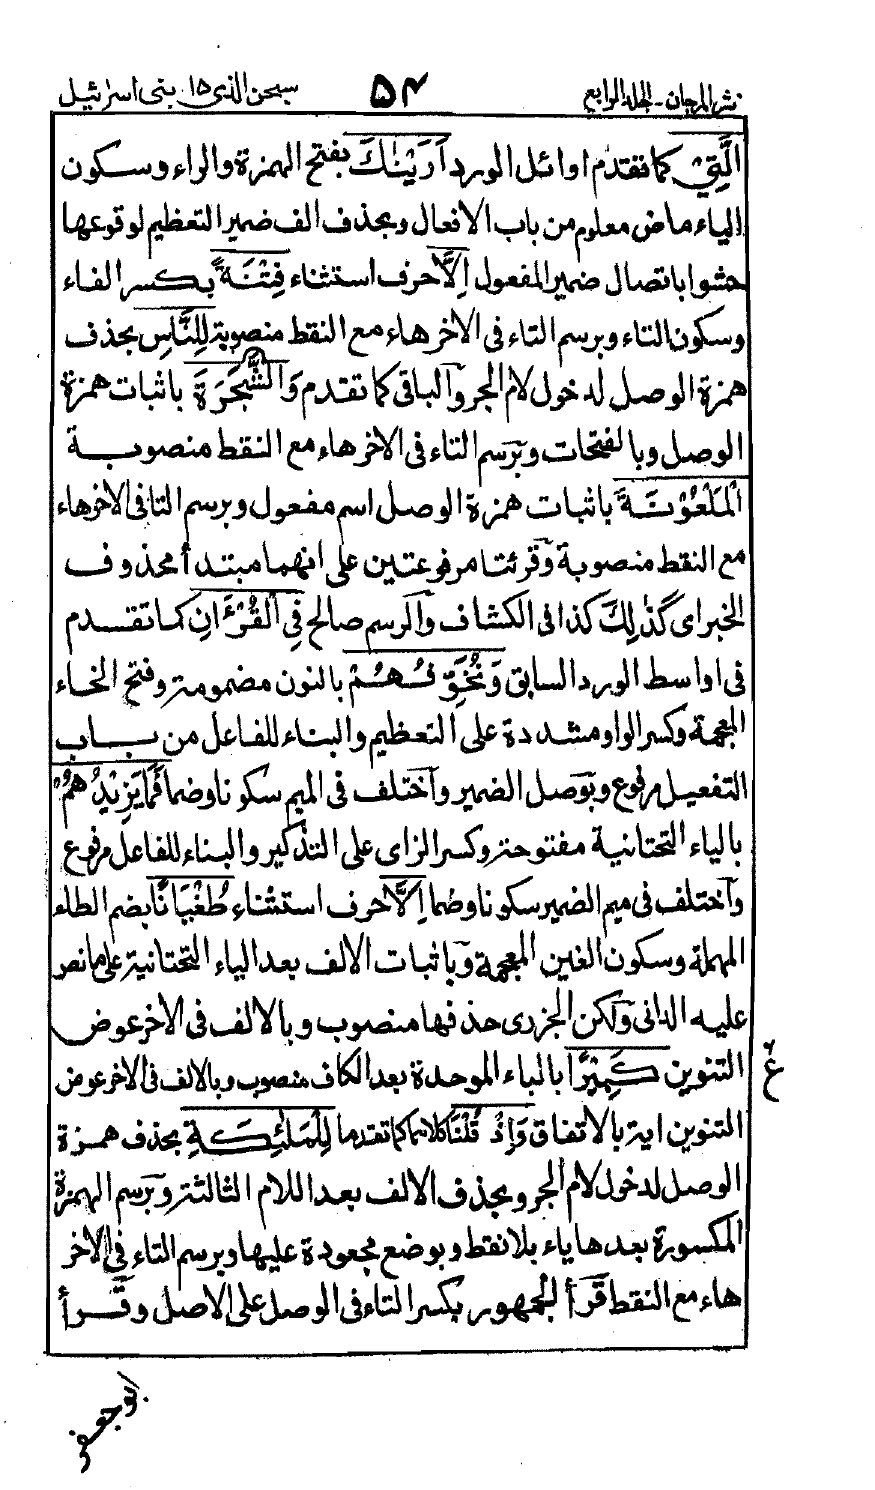 نثر المرجان - الجلد الرابع ۵۴ سبحن الذى ۱۵ بنى اسرائيل
الَّتِىْ كما تقدم اوائل الورد اَرَيْنٰكَ بفتح الهمزة والراء وسكون
الياء ماض معلوم من باب الافعال وبحذف الف ضمير التعظيم لوقوعها
حشوا باتصال ضمير المفعول اِلَّا حرف استثناء فِتْنَةً بكسر الفاء
وسكون التاء وبرسم التاء فى الاخر هاء مع النقط منصوبة لِلنَّاسِ بحذف
همزة الوصل لدخول لام الجر والباقى كما تقدم وَالشَّجَرَةَ باثبات همزة
الوصل وبالفتحات وبرسم التاء فى الاخر هاء مع النقط منصوبة
الْمَلْعُوْنَةَ باثبات همزة الوصل اسم مفعول وبرسم التا فى الاخر هاء
مع النقط منصوبة وقرئتا مرفوعتين على انهما مبتدأ محذوف
الخبر اى كَذٰلِكَ كذا فى الكشاف والرسم صالح فِى الْقُرْءَانِ كما تقدم
فى اواسط الورد السابق وَنُخَوِّفُهُمْ بالنون مضمومة وفتح الخاء
المعجمة وكسر الواو مشددة على التعظيم والبناء للفاعل من باب
التفعيل مرفوع وبوصل الضمير واختلف فى الميم سكونا وضما فَمَا يَزِيْدُهُمْ
بالياء التحتانية مفتوحة وكسر الزاى على التذكير والبناء للفاعل مرفوع
واختلف فى ميم الضمير سكونا وضما اِلَّا حرف استثناء طُغْيَانًا بضم الطاء
المهملة وسكون الغين المعجمة وباثبات الالف بعد الياء التحتانية على ما نص
عليه الدانى ولكن الجزرى حذفها منصوب وبالالف فى الاخر عوض
التنوين كَبِيْرًا بالباء الموحدة بعد الكاف منصوب وبالالف فى الاخر عوض
ع
التنوين اية بالاتفاق وَاِذْ قُلْنَا كلاهما كما تقدما لِلْمَلٰئِكَةِ بحذف همزة
الوصل لدخول لام الجر وبحذف الالف بعد اللام الثالثة وبرسم الهمزة
المكسورة بعدها ياء بلا نقط وبوضع مجعودة عليها وبرسم التاء فى الاخر
هاء مع النقط قرأ الجمهور بكسر التاء فى الوصل على الاصل وقرأ
ابو جعفر